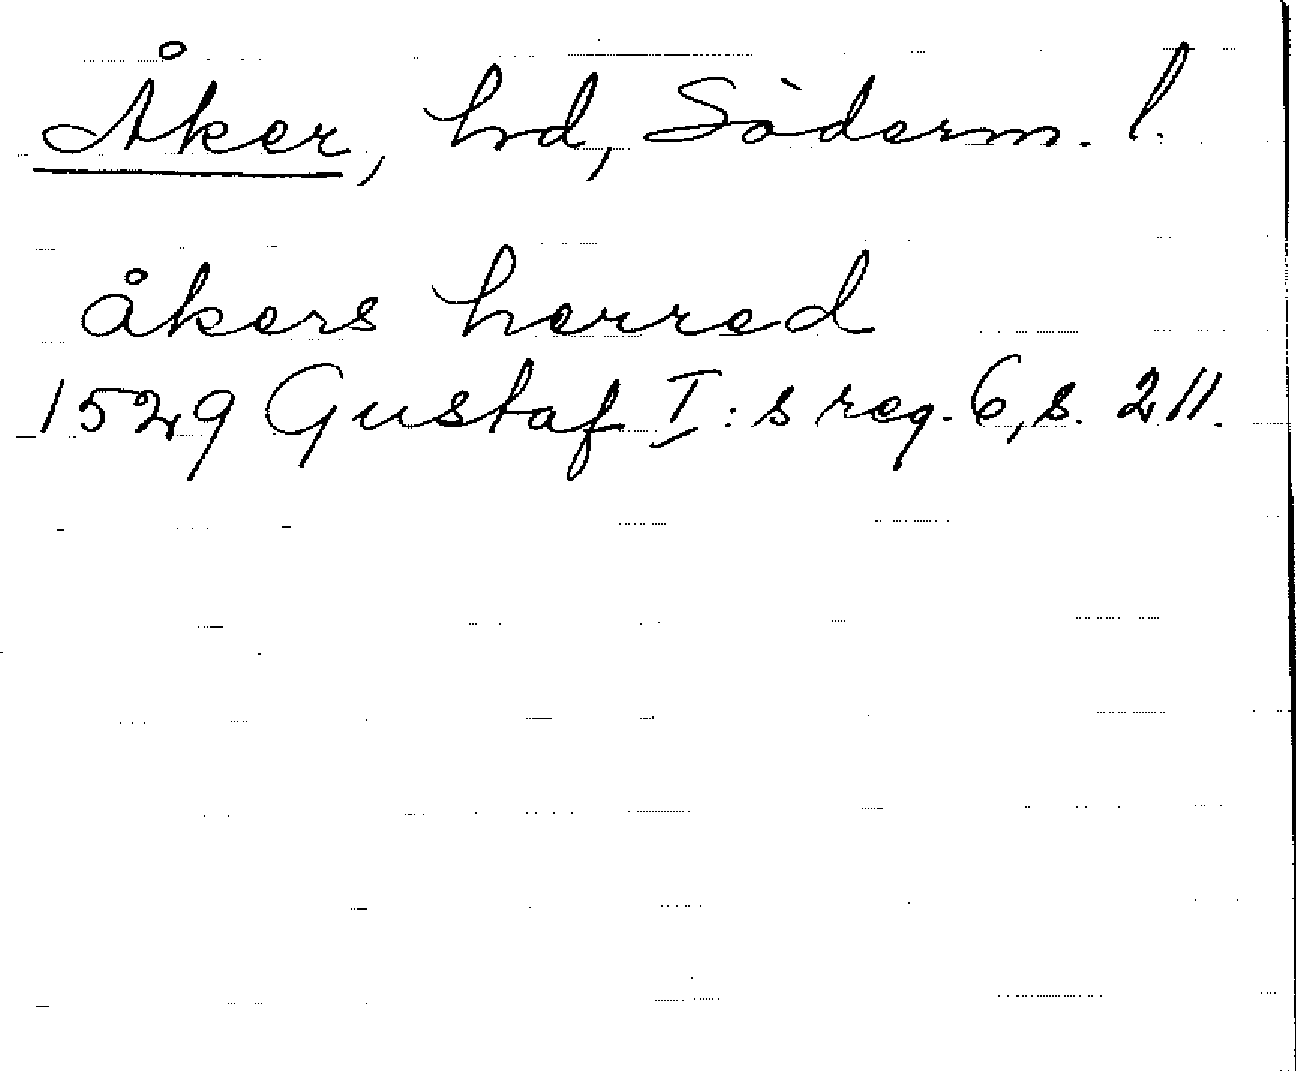 Åker, hd, Söderm. l.
åkers herred
1529 Gustaf I:s reg. 6, s. 211.